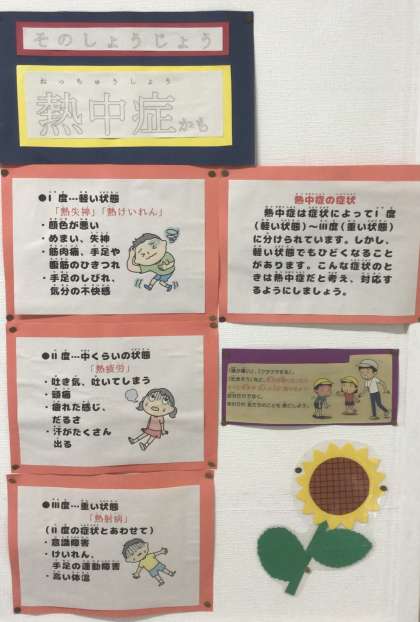 そのしょうじょう
ねっちゅうしょう
熱中症かも
●Ⅰ度…軽い状態
「熱失神」「熱けいれん」
・顔色が悪い
・めまい、失神
・筋肉痛、手足や
腹筋のひきつれ
・手足のしびれ、
気分の不快感
熱中症の症状
熱中症は症状によってⅠ度
(軽い状態)～Ⅲ度(重い状態)
に分けられています。しかし、
軽い状態でもひどくなること
があります。こんな症状のと
きは熱中症だと考え、対応す
るようにしましょう。
●Ⅱ度…中くらいの状態
「熱疲労」
・吐き気、吐いてしまう
・頭痛
・疲れた感じ、
だるさ
・汗がたくさん
出る
●Ⅲ度…重い状態
「熱射病」
(Ⅱ度の症状とあわせて)
・意識障害
・けいれん、
手足の運動障害
・高い体温